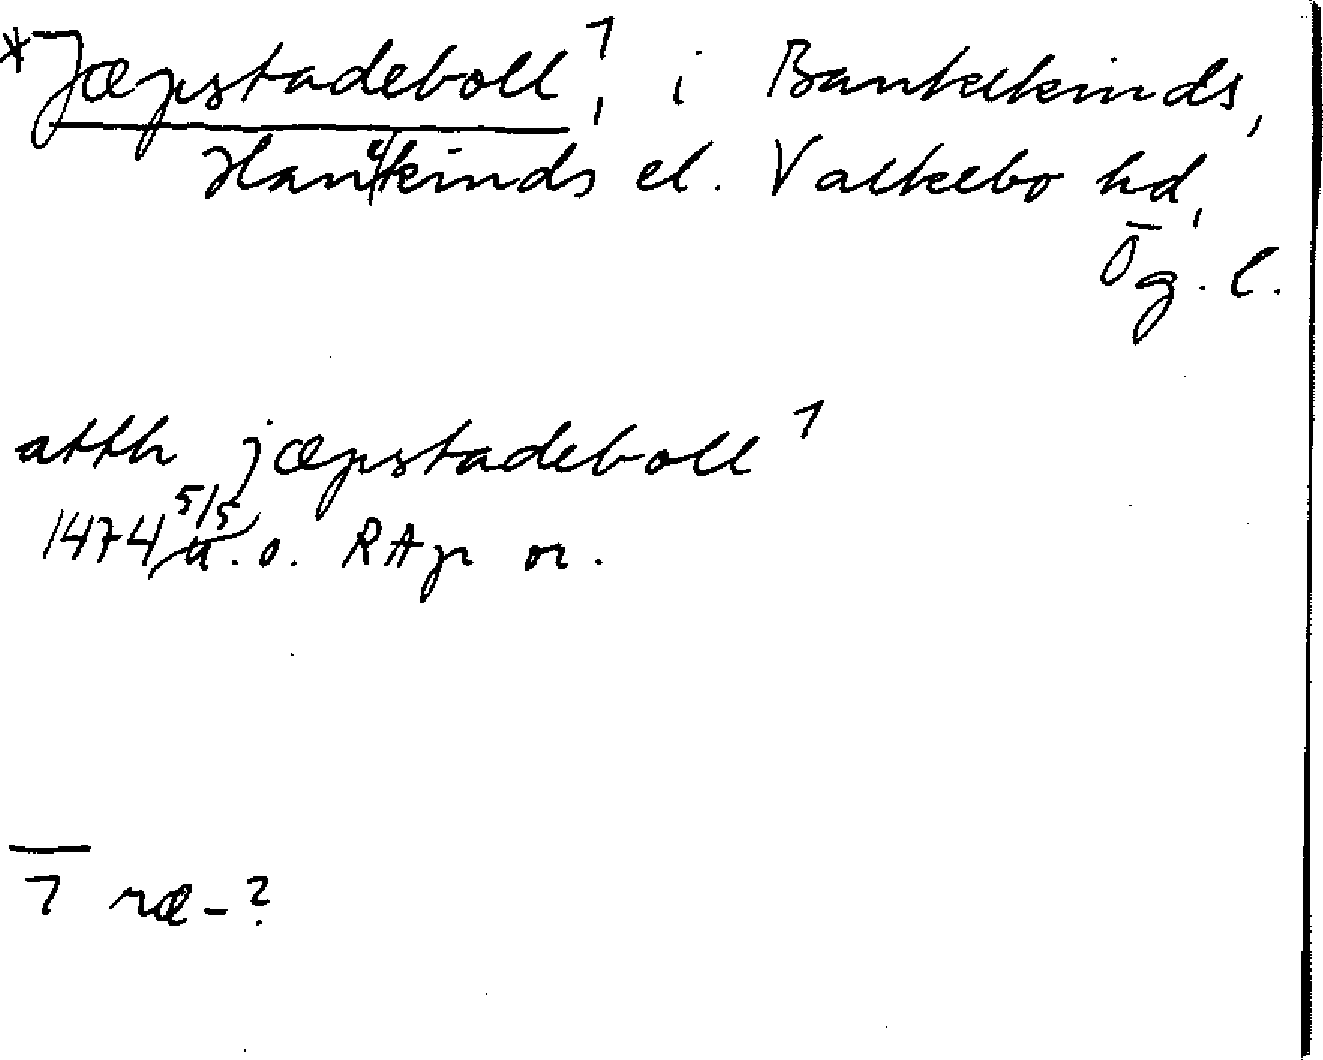 *Jæpstadeboll⁊, i Bankekinds,
Hanekinds el. Valkebo hd,
Ög. l.
atth jæpstadeboll⁊
1474 5/5 u. o. RAp or.
⁊ ræ-?